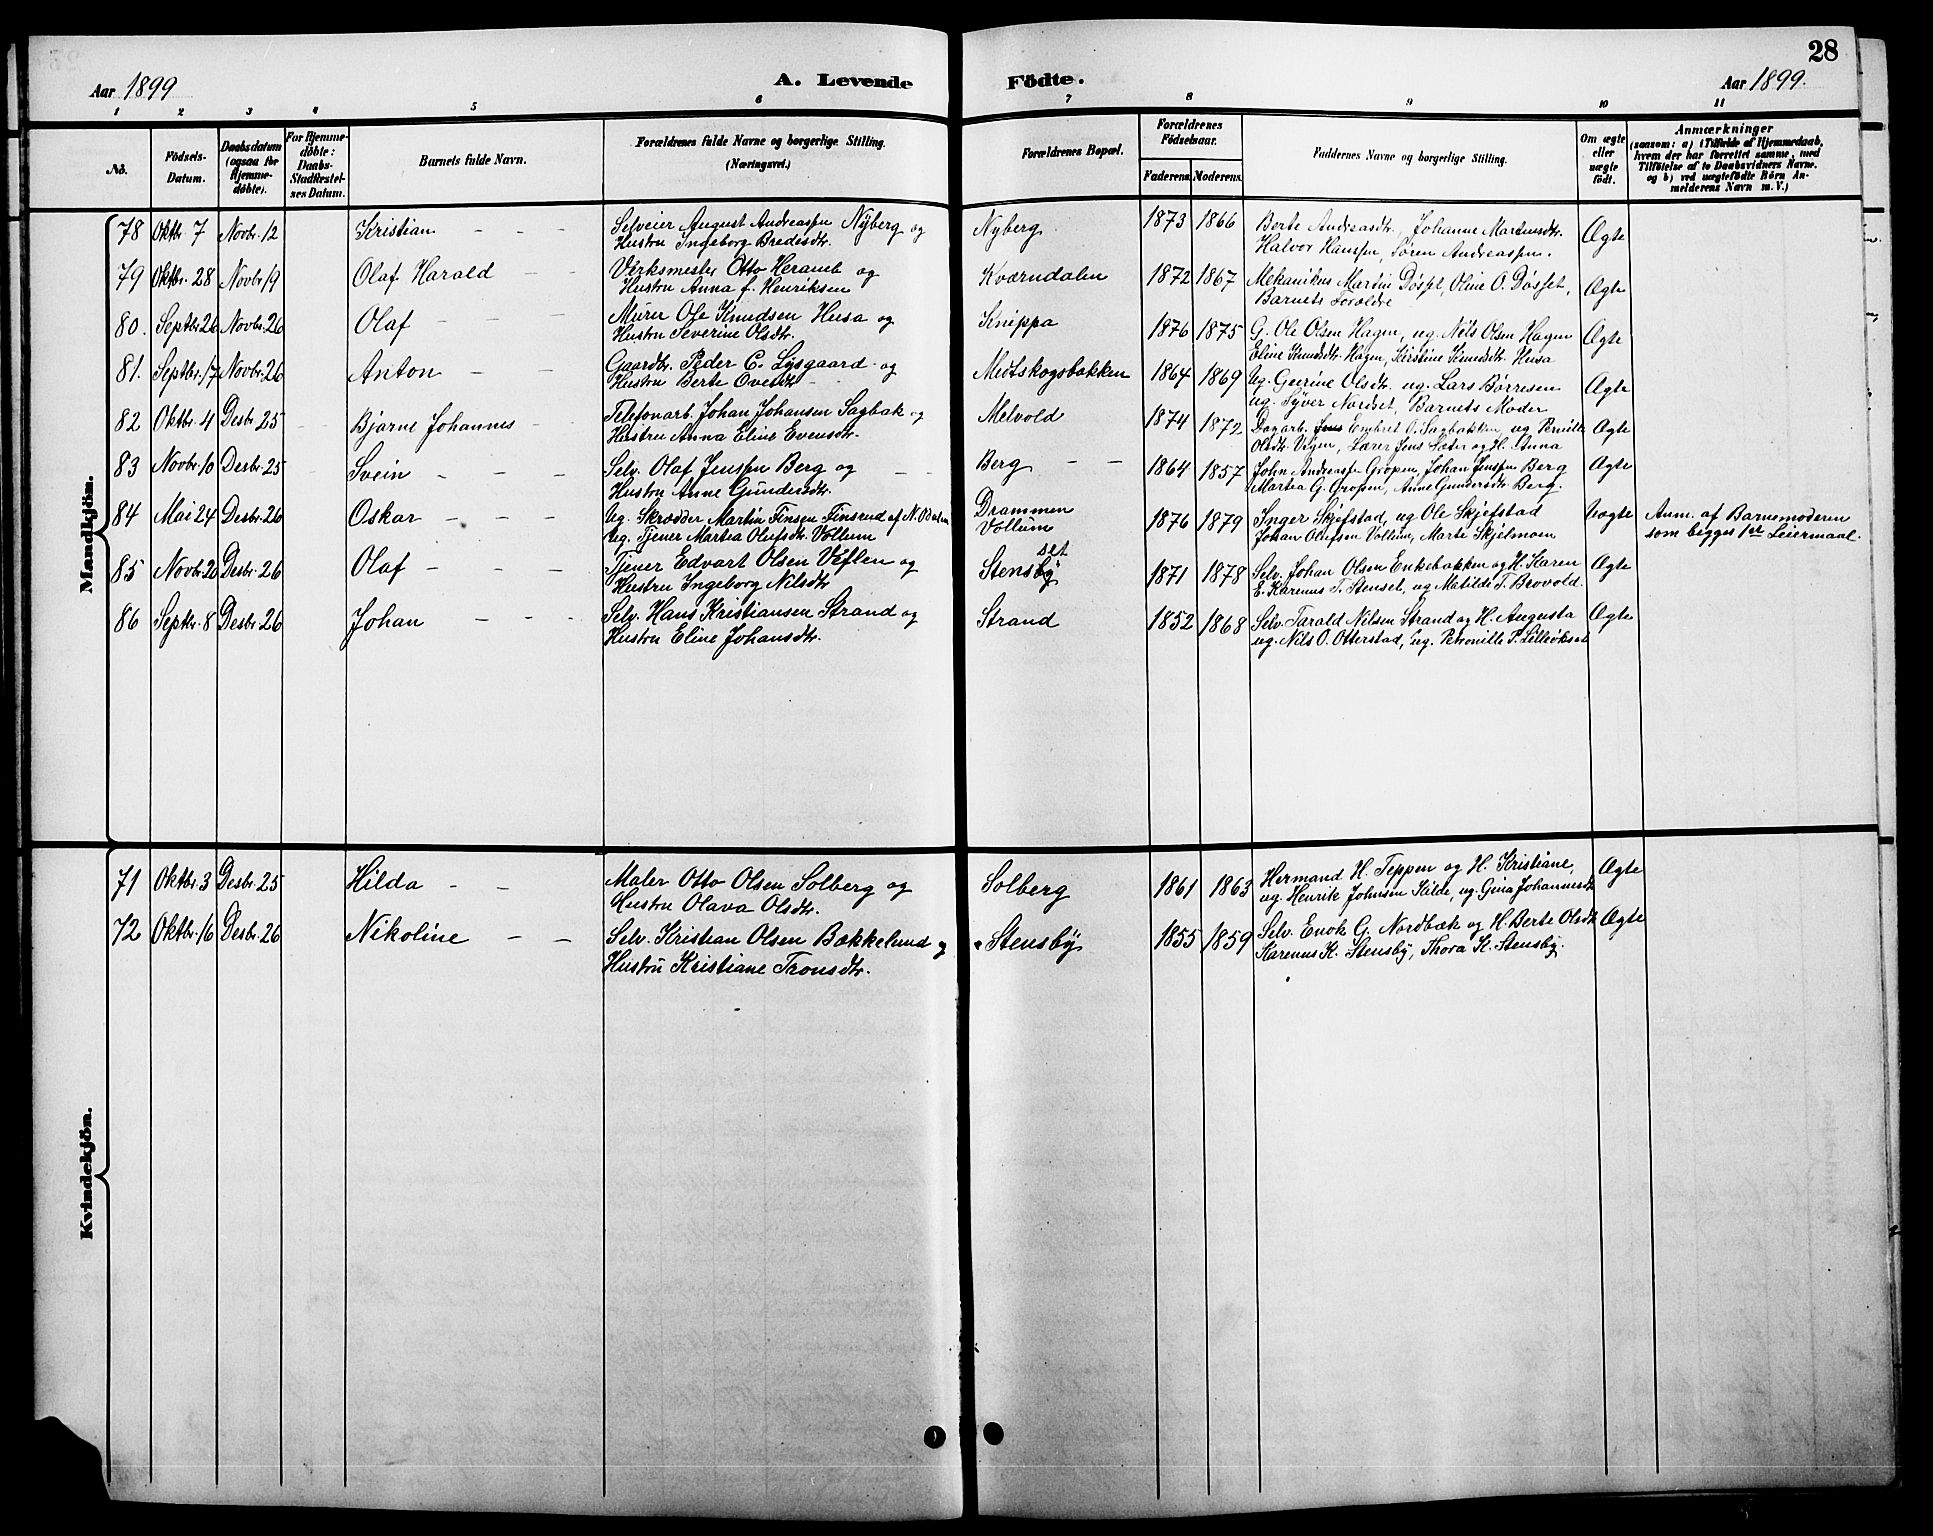 28
Aar 1899 A. Levende Födte. Aar 1899.
1 2 3 4 5 6 7 8 9 10 11
No.
Födsels-Datum.
Daabsdatum (ogsaa for Hjemmedöbte).
For Hjemmedöbte: Daabs-Stadfæstelses Datum.
Barnets fulde Navn.
Forældrenes fulde Navne og borgerlige Stilling. (Næringsvei.)
Forældrenes Bopæl.
Forældrenes Födselsaar.
Faderens. Moderens.
Faddernes Navne og borgerlige Stilling.
Om ægte eller uægte födt.
Anmærkninger
(saasom: a) i Tilfælde af Hjemmedaab, hvem der har forrettet samme, med Tilföielse af to Daabsvidners Navne, og b) ved uægtefödte Börn Anmelderens Navn m. V.)
Mandkjön.
78 Oktbr 7 Novbr. 12 Kristian - - - Selveier August Andreasen Nyberg og Nyberg 1873 1866 Berte Andreasdtr., Johanne Martinsdtr. Ægte
Hustru Ingeborg Bredesdtr. Halvor Hansen, Søren Andreasen.
79 Oktbr. 28 Novbr. 19 Olaf Harald - - Verksmester Otto Heramb og Kværndalen 1872 1867 Mekanikus Martin Døsset, Oline O. Døsset, Ægte
Hustru Anna f. Henriksen Barnets Forældre
80. Septbr. 26 Novbr. 26 Olaf - - - Murer Ole Knudsen Husa og Knippa 1876 1875 G. Ole Olsen Hagen, ug. Nils Olsen Hagen Ægte
Hustru Severine Olsdtr. Eline Knudsdtr. Hagen, Kirstine Knudsdtr. Husa
81. Septbr. 17 Novbr. 26 Anton - - Gaardbr. Peder C. Lysgaard og Medtskogsbakken 1864 1869 Ug. Gurine Olsdtr. ug. Lars Børresen Ægte
Hustru Berte Ovesdtr. ug. Syver Nordset, Barnets Moder
82 Oktbr. 4 Desbr. 25 Bjarne Johannes - Telefonarb. Johan Johansen Sagbak og Melvold 1874 1872 Dagarb. Embret O. Sagbakken, ug Pernille Ægte
Hustru Anna Eline Evensdtr. Olsdtr. Vigen, Lærer Jens Sæter og H. Anna
83 Novbr. 10 Desbr. 25 Svein - - - Selv. Olaf Jensen Berg og Berg - - 1864 1857 John Andreasen Gropen, Johan Jensen Berg Ægte
Hustru Anne Gundersdtr. Martea G. Gropen, Anne Gundersdtr. Berg.
84 Mai 24 Desbr. 26 Oskar - - - Ug. Skrædder Martin Finsen Finsrud af N. Odalen Drammen 1876 1879 Inger Skjefstad, ug Ole Skjefstad Uægte Anm. af Barnemoderen
Ug. Tjener Martea Olufsdtr. Vollum Vollum Johan Olufsen Vollum, Marte Skjelmoen som begges 1ste Leiermaal.
85 Novbr. 20 Desbr. 26 Olaf - - - Tjener Edvart Olsen Veflen og Stensby set 1871 1878 Selv. Johan Olsen Enkebakken og H. Karen Ægte
Hustru Ingeborg Nilsdtr E. Karenus T. Stenset, ug Matilde T. Brovold.
86 Septbr. 8 Desbr. 26 Johan - - - Selv. Hans Kristiansen Strand og Strand 1852 1868 Selv. Tarald Nilsen Strand og H. Augusta Ægte
Hustru Eline Johansdtr. ug. Nils O. Otterstad, ug. Petronille P. Lilleøkset
Kvindekjön.
71 Oktbr. 3 Desbr. 25 Hilda - - Maler Otto Olsen Solberg og Solberg 1861 1863 Hermand H. Teppen og H. Kristiane, Ægte
Hustru Olava Olsdtr. ug. Henrik Johnsen Kilde, ug. Gina Johannesdtr
72 Oktbr. 16 Desbr. 26 Nikoline - - Selv. Kristian Olsen Bækkelund og Stensby 1855 1859 Selv. Enok G. Nordbæk og H. Berte Olsdtr Ægte
Hustru Kristiane Tronsdtr. Karenus K. Stensby, Thora K. Stensby.